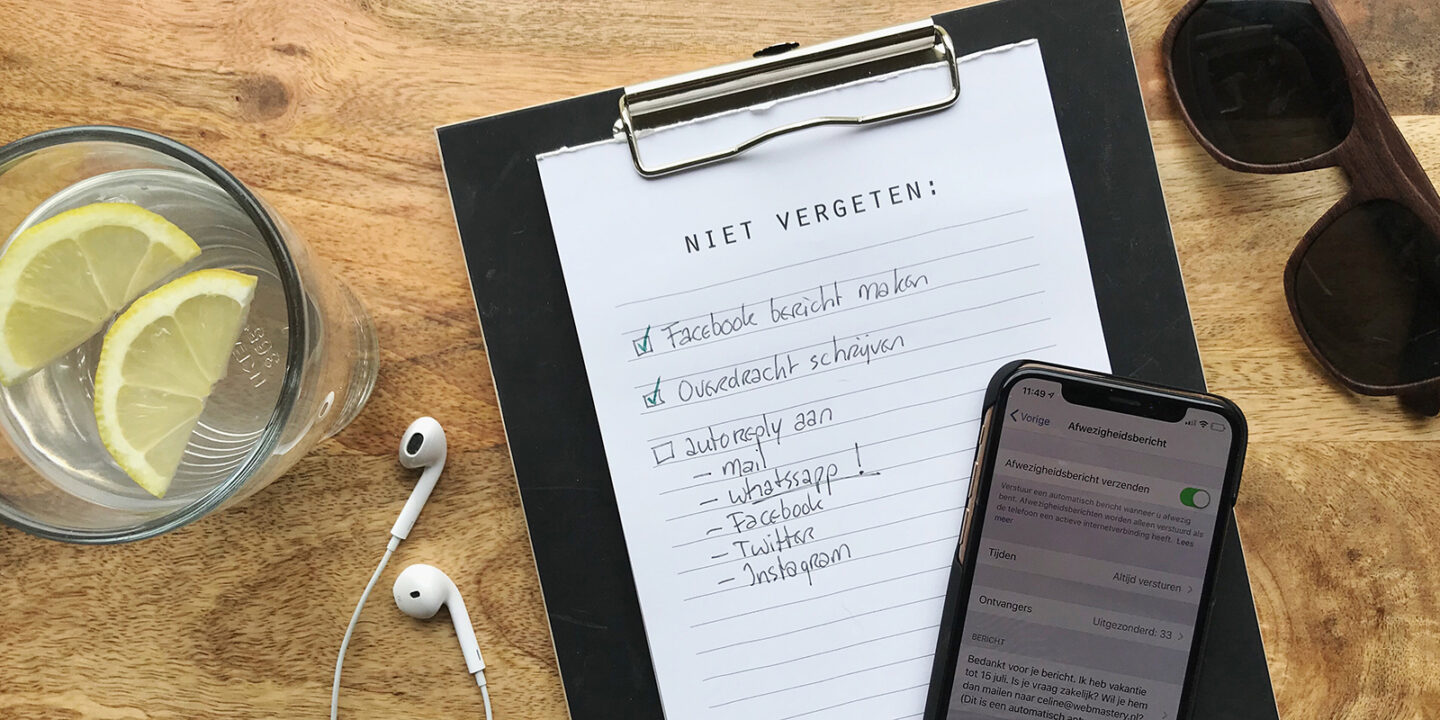 NIET VERGETEN:
Facebook bericht maken
Overdracht schrijven
autoreply aan
- mail
- whatssapp!
- Facebook
- Twitter
- Instagram
11:49
Vorige
Afwezigheidsbericht
Afwezigheidsbericht verzenden
Verstuur een automatisch bericht wanneer u afwezig
bent. Afwezigheidsberichten worden alleen verstuurd als
de telefoon een actieve internetverbinding heeft. Lees
meer
Tijden
Altijd versturen
Ontvangers
Uitgezonderd: 33
BERICHT
Bedankt voor je bericht. Ik heb vakantie
tot 15 juli. Is je vraag zakelijk? Wil je hem
dan mailen naar celine@webmastery.nl?
(Dit is een automatisch